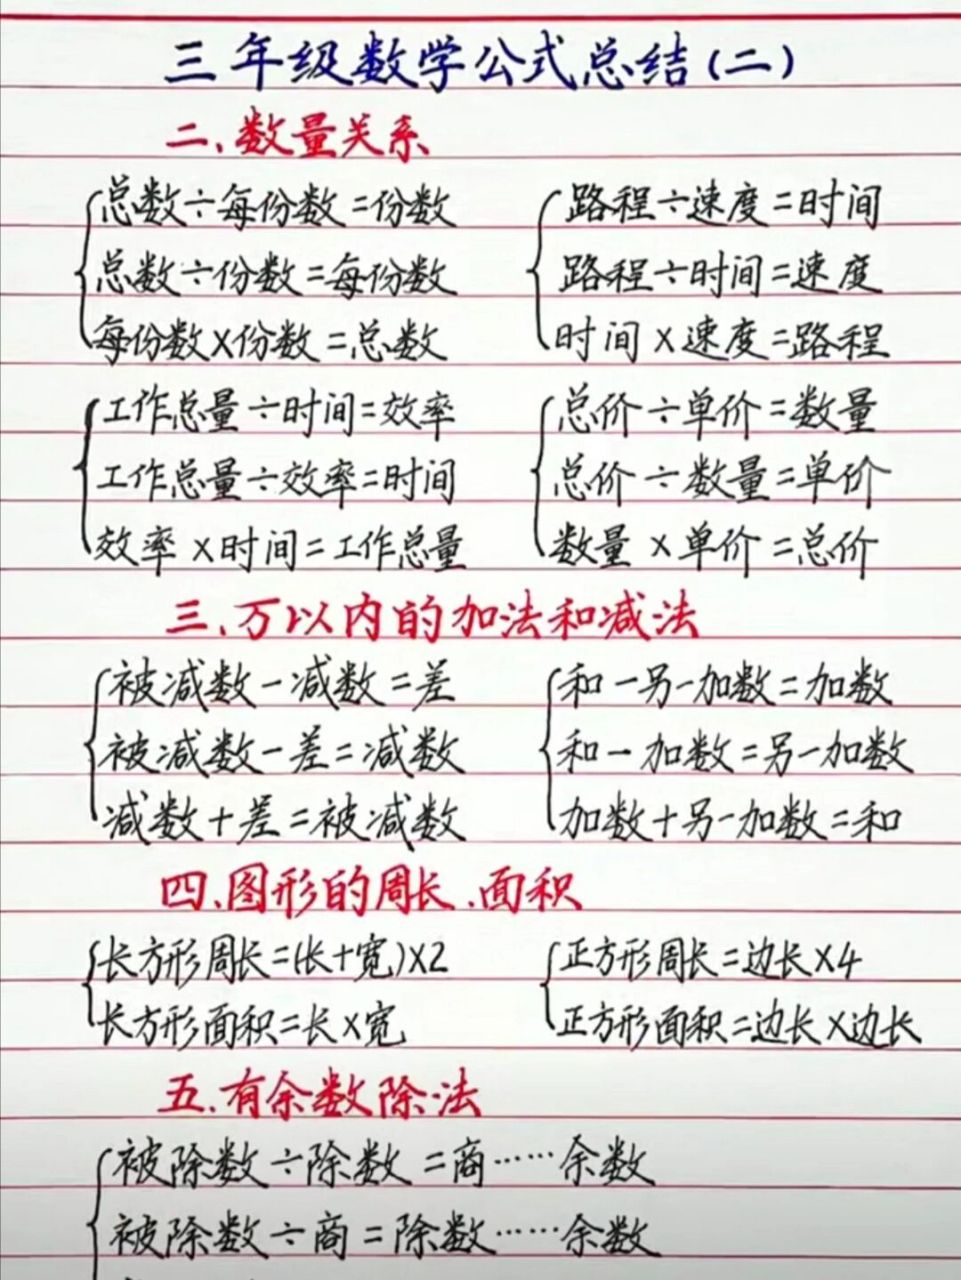 三年级数学公式总结(二)
二、数量关系
总数÷每份数=份数
总数÷份数=每份数
每份数×份数=总数
路程÷速度=时间
路程÷时间=速度
时间×速度=路程
工作总量÷时间=效率
工作总量÷效率=时间
效率×时间=工作总量
总价÷单价=数量
总价÷数量=单价
数量×单价=总价
三、万以内的加法和减法
被减数-减数=差
被减数-差=减数
减数+差=被减数
和-另一加数=加数
和-加数=另一加数
加数+另一加数=和
四、图形的周长、面积
长方形周长=(长+宽)×2
长方形面积=长×宽
正方形周长=边长×4
正方形面积=边长×边长
五、有余数除法
被除数÷除数=商……余数
被除数÷商=除数……余数